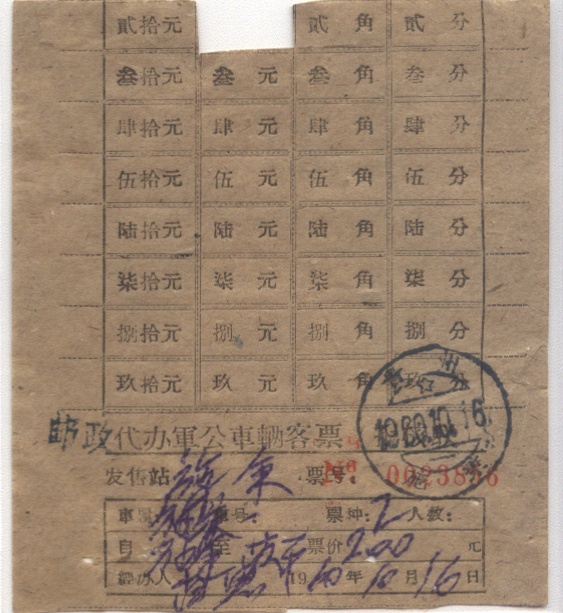 贰拾元 贰角 贰分
叁拾元 叁元 叁角 叁分
肆拾元 肆元 肆角 肆分
伍拾元 伍元 伍角 伍分
陆拾元 陆元 陆角 陆分
柒拾元 柒元 柒角 柒分
捌拾元 捌元 捌角 捌分
玖拾元 玖元 玖角 玖分
贵州
1960.10.16
邮政代办軍公車輛客票
发售站 施秉 票号: No 0023836
車 号: 票种: 2 人数:
自 至 票价 200 元
經办人 1960年10月16日